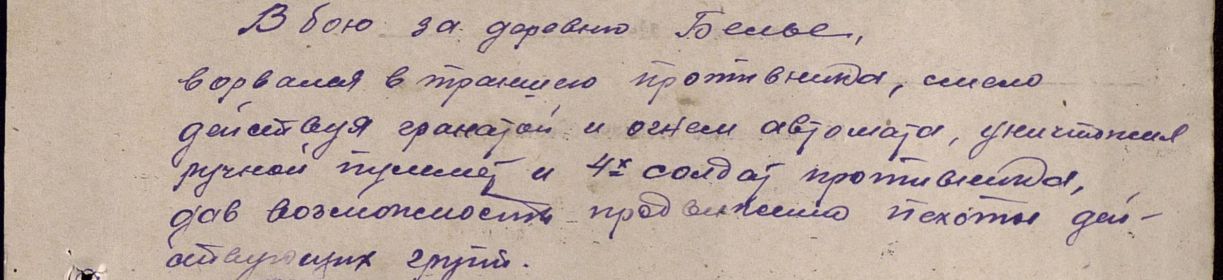 В бою за деревню Белье,
ворвался в траншею противника, смело
действуя гранатой и огнем автомата, уничтожил
ручной пулемет и 4х солдат противника,
дав возможность продвижению пехоты дей-
ствующих групп.